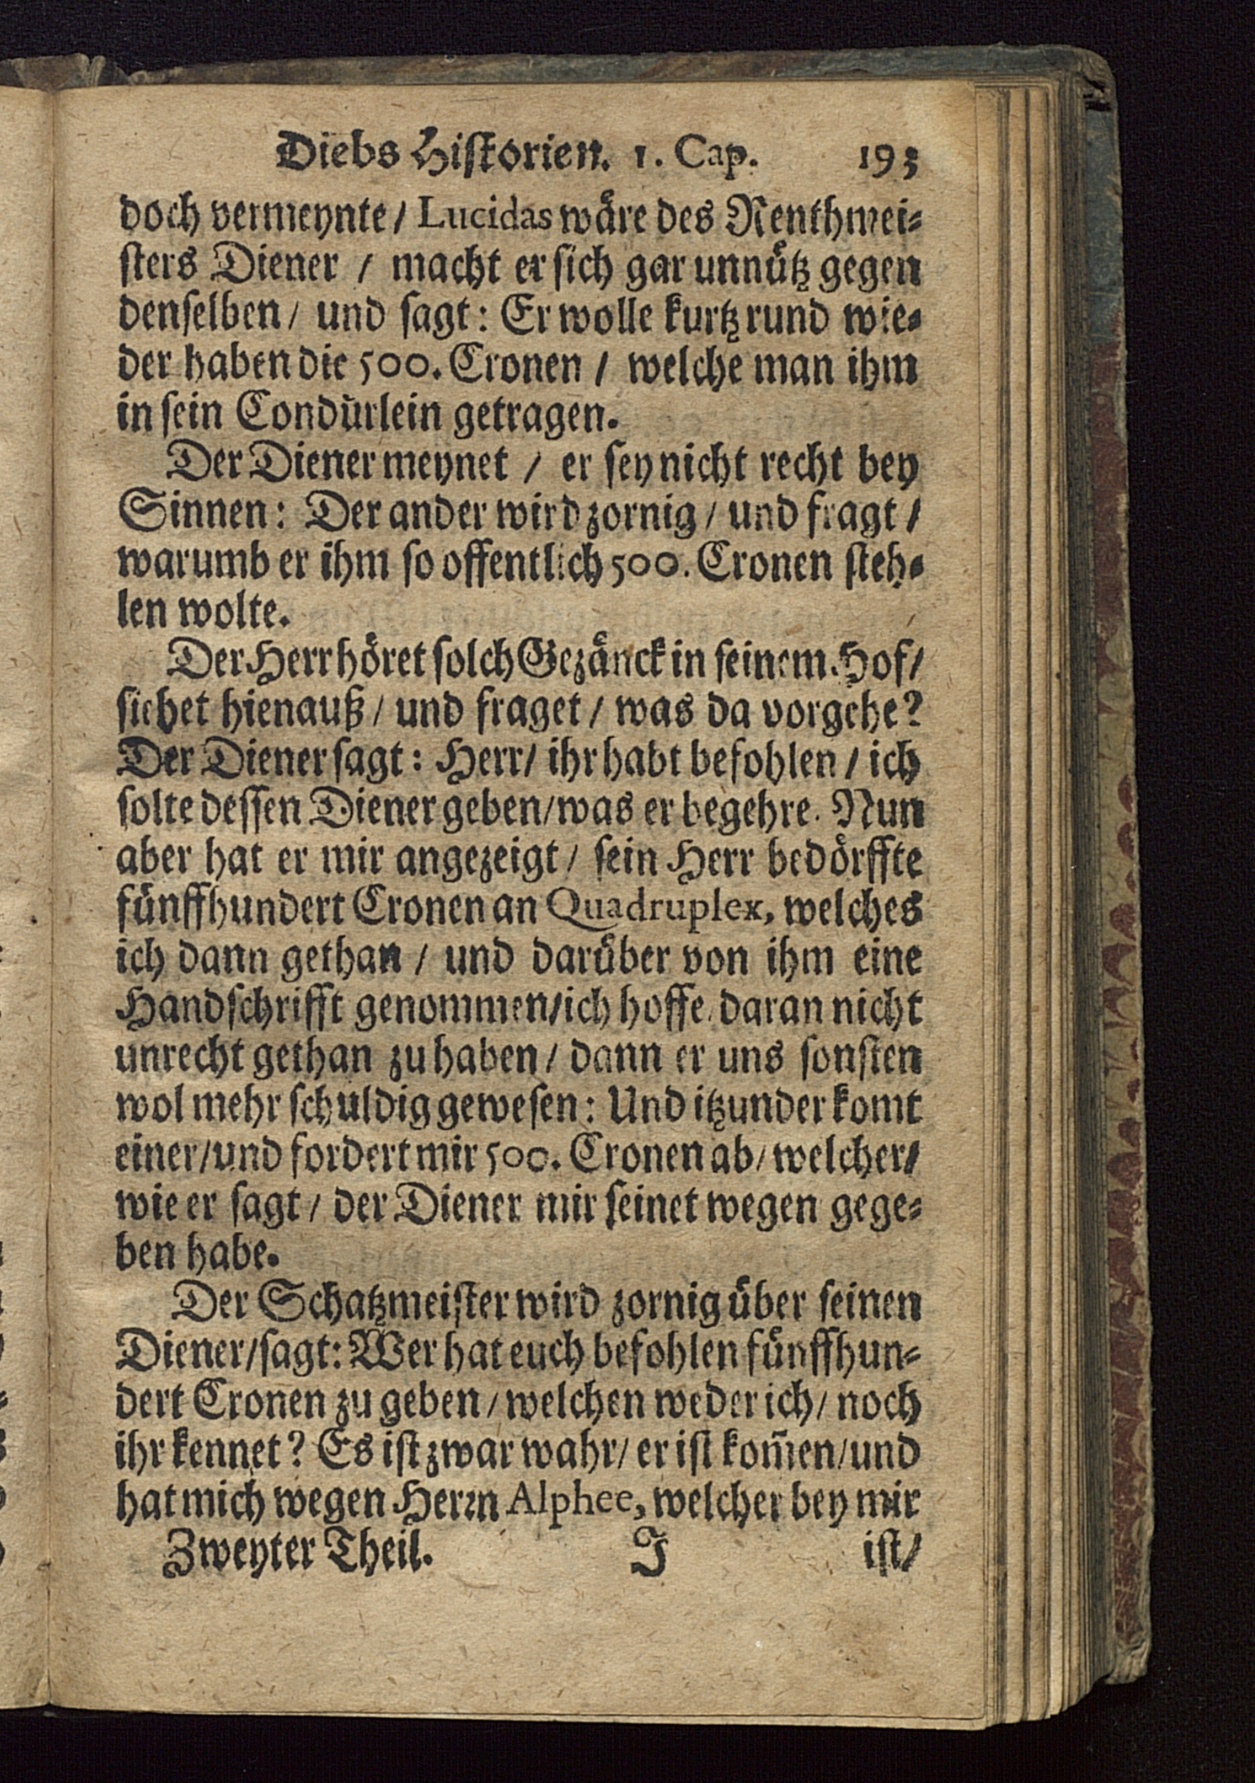 Diebs Historien. 1. Cap. 193
doch vermeynte / Lucidas wäre des Renthmei-
sters Diener / macht er sich gar unnütz gegen
denselben / und sagt: Er wolle kurtz rund wie-
der haben die 500. Cronen / welche man ihm
in sein Condürlein getragen.
Der Diener meynet / er sey nicht recht bey
Sinnen: Der ander wird zornig / und fragt /
warumb er ihm so offentlich 500. Cronen steh-
len wolte.
Der Herr höret solch Gezänck in seinem Hof /
siehet hienauß / und fraget / was da vorgehe?
Der Diener sagt: Herr / ihr habt befohlen / ich
solte dessen Diener geben / was er begehre. Nun
aber hat er mir angezeigt / sein Herr bedörffte
fünffhundert Cronen an Quadruplex, welches
ich dann gethan / und darüber von ihm eine
Handschrifft genommen / ich hoffe daran nicht
unrecht gethan zu haben / dann er uns sonsten
wol mehr schuldig gewesen: Und itzunder komt
einer / und fordert mir 500. Cronen ab / welcher /
wie er sagt / der Diener mir seinet wegen gege-
ben habe.
Der Schatzmeister wird zornig über seinen
Diener / sagt: Wer hat euch befohlen fünffhun-
dert Cronen zu geben / welchen weder ich / noch
ihr kennet? Es ist zwar wahr / er ist kom̄en / und
hat mich wegen Herrn Alphee, welcher bey mir
Zweyter Theil. J ist /